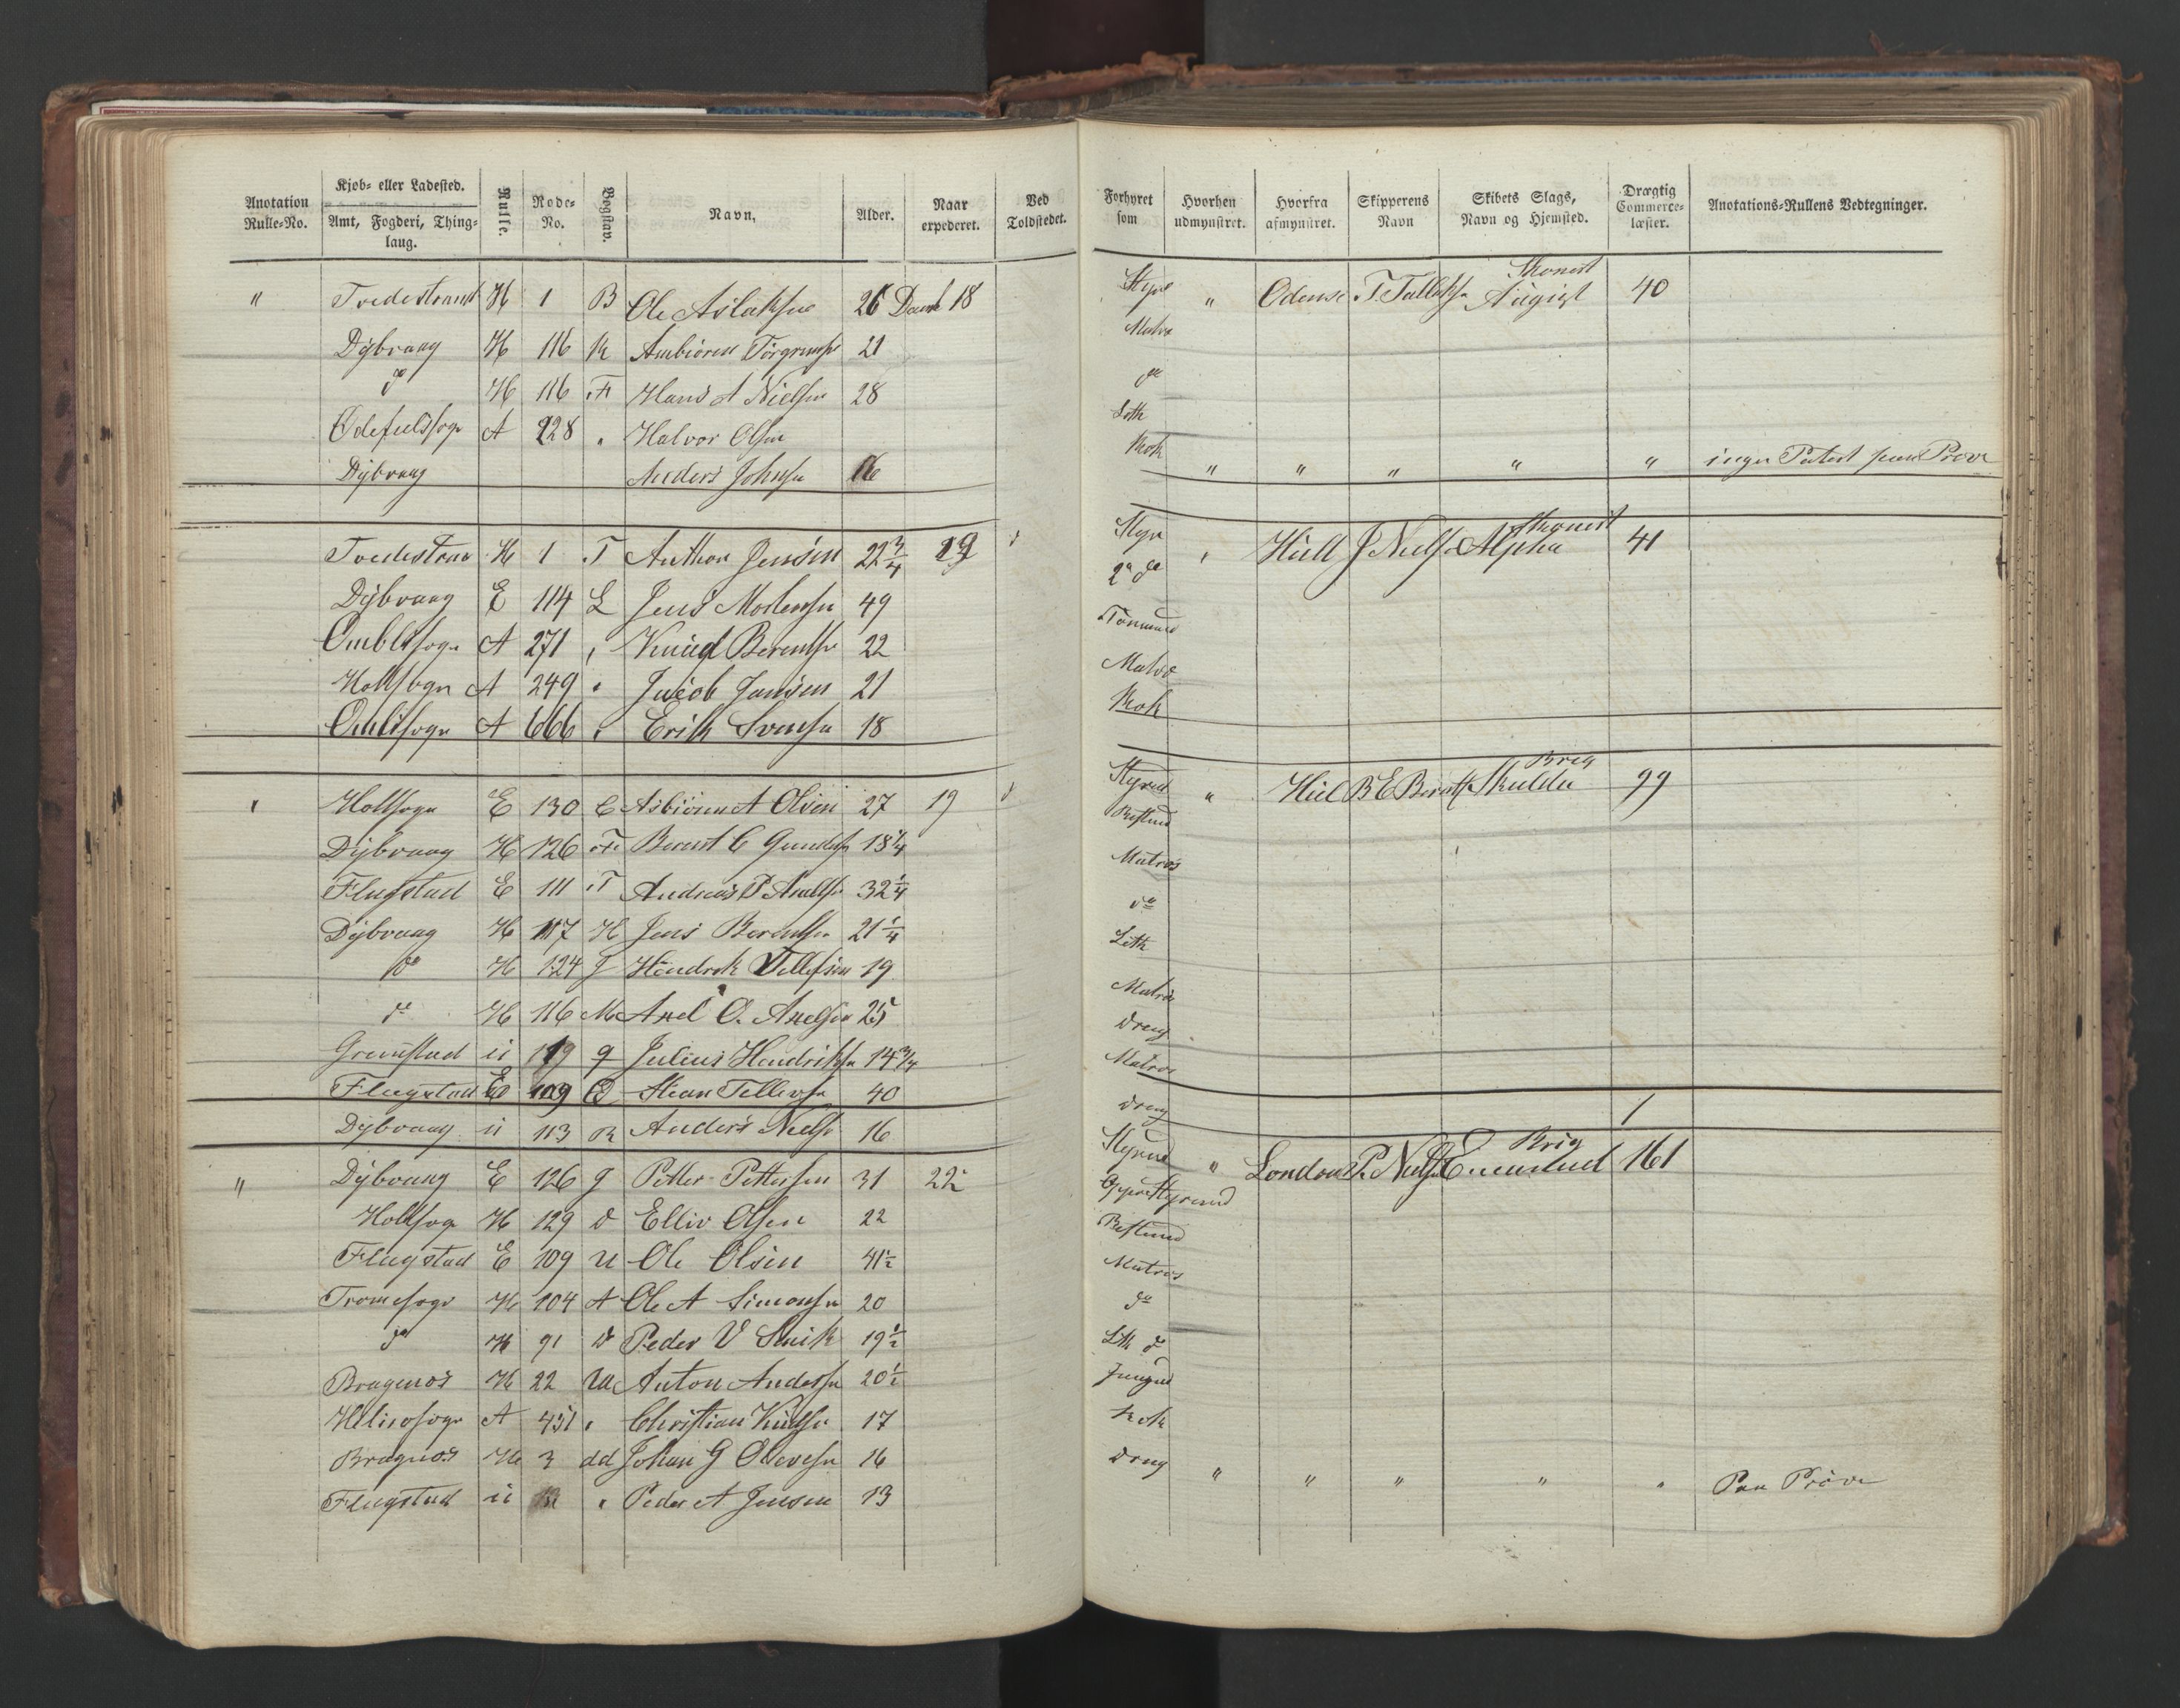 Anotation Rulle-No. Kjøb- eller Ladested. Amt, Fogderi, Thinglaug. Rulle. Rode-No. Bogstav. Navn, Alder. Naar expederet. Ved Toldstedet.
" Tvedestrand H 1 B Ole Aslaksen 26 18
Dybvaag H 116 K Ambiøren 21
do H 116 F Hans A Nielsen 28
A 228 " Halvor Olsen
Dybvaag Anders Johnsen 16
H 1 T Anthon Jensen 22 3/4 19
Dybvaag E 114 L Jens Mortensen 49
A 271 " Knud Berentsen 22
Holtsogn A 249 " Jacob Jansen 21
A 666 " Erik Svensen 18
" Holtsogn E 130 C Asbiøren A Olsen 27 19
Dybvaag H 126 F Berent C 18 1/4
Flagstad E 111 T Andreas P 32 1/4
Dybvaag H 117 H Jens Berentsen 21 1/4
do H 124 J Hendrik Tellefsen 19
do H 116 M Axel O. Axelsen 25
Grimstad ii 119 q Julius Hendriksen 14 3/4
Flagstad E 109 Ø Stean Tellevsen 40
Dybvaag ii 113 R Anders Nielsen 16
" Dybvaag E 126 J Petter Pettersen 31 22
Holtsogn H 129 d Elliv Olsen 22
Flagstad E 109 U Ole Olsen 41 1/2
Tromøsogn H 104 A Ole A Simonsen 20
do H 91 Peder V 19 1/2
Bragnæs H 22 Anton Andersen 20 1/2
A 451 " Christian Knudsen 17
Bragnæs H 3 dd Johan G 16
Flagstad ii " Peder A Jensen 13
Forhyret som Hvorhen udmynstret. Hvorfra afmynstret. Skipperens Navn Skibets Slags, Navn og Hjemsted. Drægtig Commerce-læster. Anotations-Rullens Vedtegninger.
Skonert
Styr " Odense T. Tallaksen August 40
Matros
do
Leth
Kok " " " " " ingen Patent paa Prøve
Skonert
Styr " Hull J Nielsen Alpha 41
2 do
Tømmermand
Matros
Kok
Brig
Styrmd " Hull B E Berentsen Skulda 99
Bestmd
Matros
do
Leth
Matros
Dreng
Matros
Dreng
Brig
Styrmd " London P. Nielsen 161
Styrmand
Bestmd
Matros
do
Leth do
Jungmd
Kok
Dreng " " " " " Paa Prøve